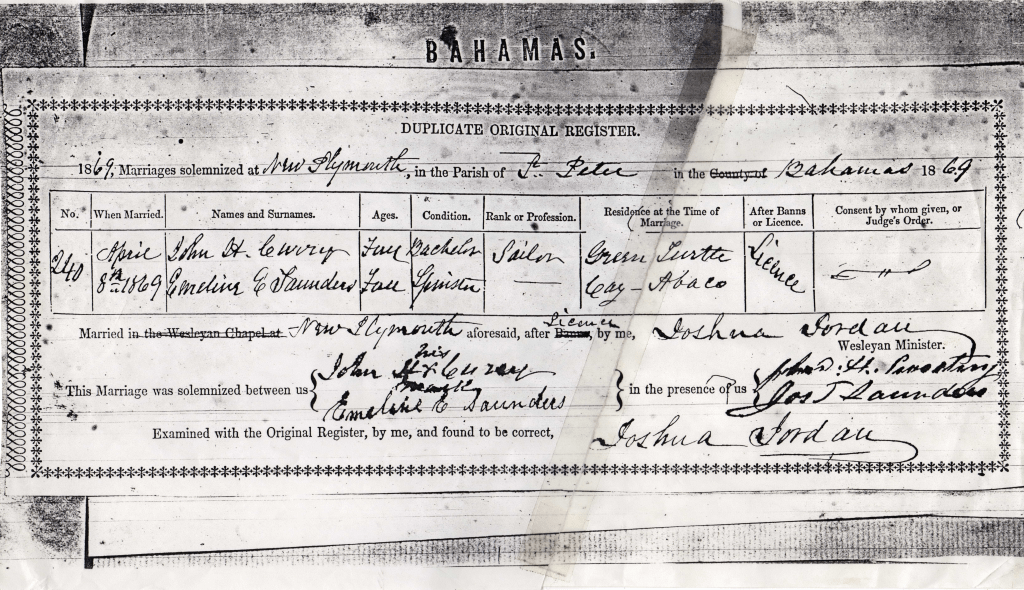 BAHAMAS.
DUPLICATE ORIGINAL REGISTER.
1869, Marriages solemnized at New Plymouth, in the Parish of St. Peter in the County of Bahamas 1869
No. When Married. Names and Surnames. Ages. Condition. Rank or Profession. Residence at the Time of Marriage. After Banns or Licence. Consent by whom given, or Judge's Order.
240 April 8th 1869 John H. Curry Full Bachelor Sailor Green Turtle Licence
Emeline E Saunders Full Spinster — Cay - Abaco
Married in the Wesleyan Chapel at New Plymouth aforesaid, after Banns Licence, by me, Joshua Jordan
Wesleyan Minister.
This Marriage was solemnized between us { John H his x mark Curry } in the presence of us { H.
Emeline E Saunders Jos T Saunders
Examined with the Original Register, by me, and found to be correct, Joshua Jordan